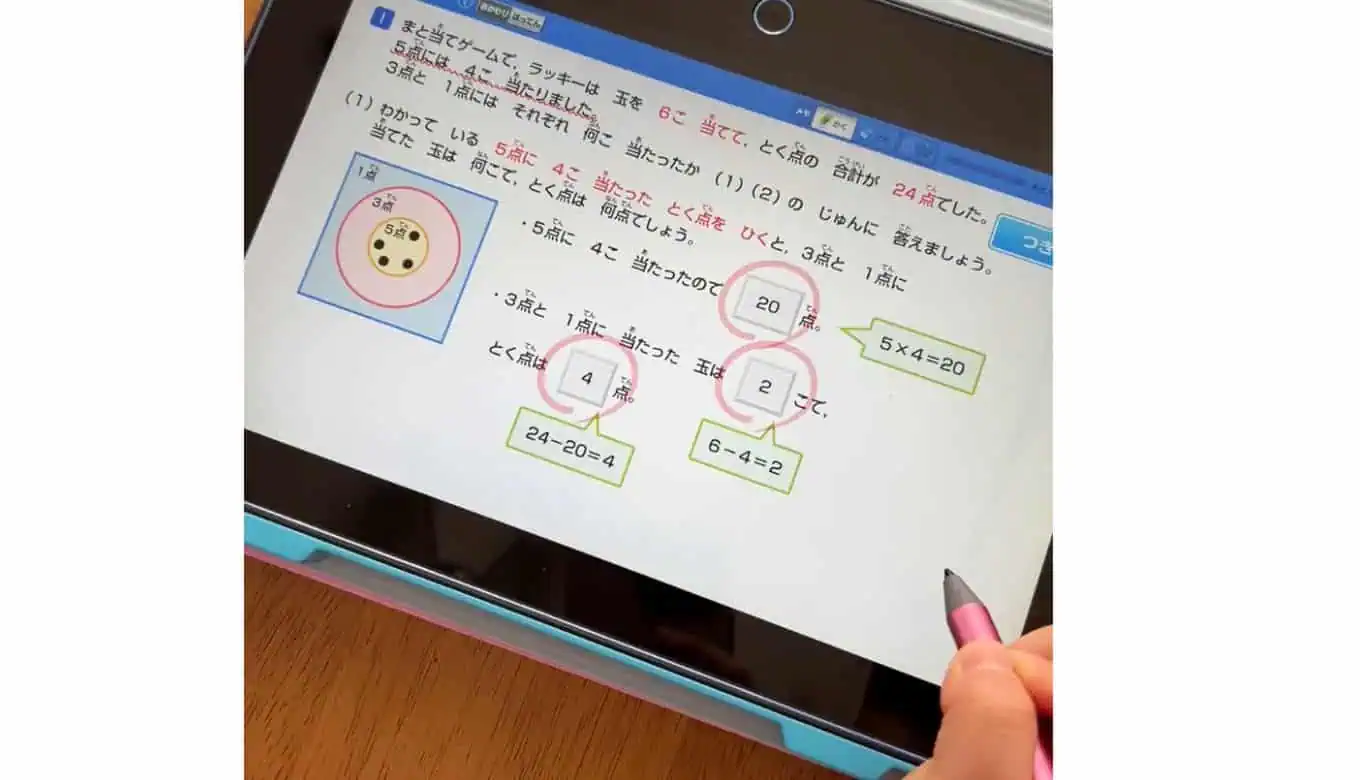 1
まと当てゲームで、ラッキーは 玉を 6こ 当てて、とく点の 合計が 24点でした。
5点には 4こ 当たりました。
3点と 1点には それぞれ 何こ 当たったか (1)(2)の じゅんに 答えましょう。
(1)わかって いる 5点に 4こ 当たった とく点を ひくと、3点と 1点に
当てた 玉は 何こで、とく点は 何点でしょう。
1点
3点
5点
・5点に 4こ 当たったので 20 点。
5×4=20
・3点と 1点に 当たった 玉は 2 こで、
とく点は 4 点。
24-20=4
6-4=2